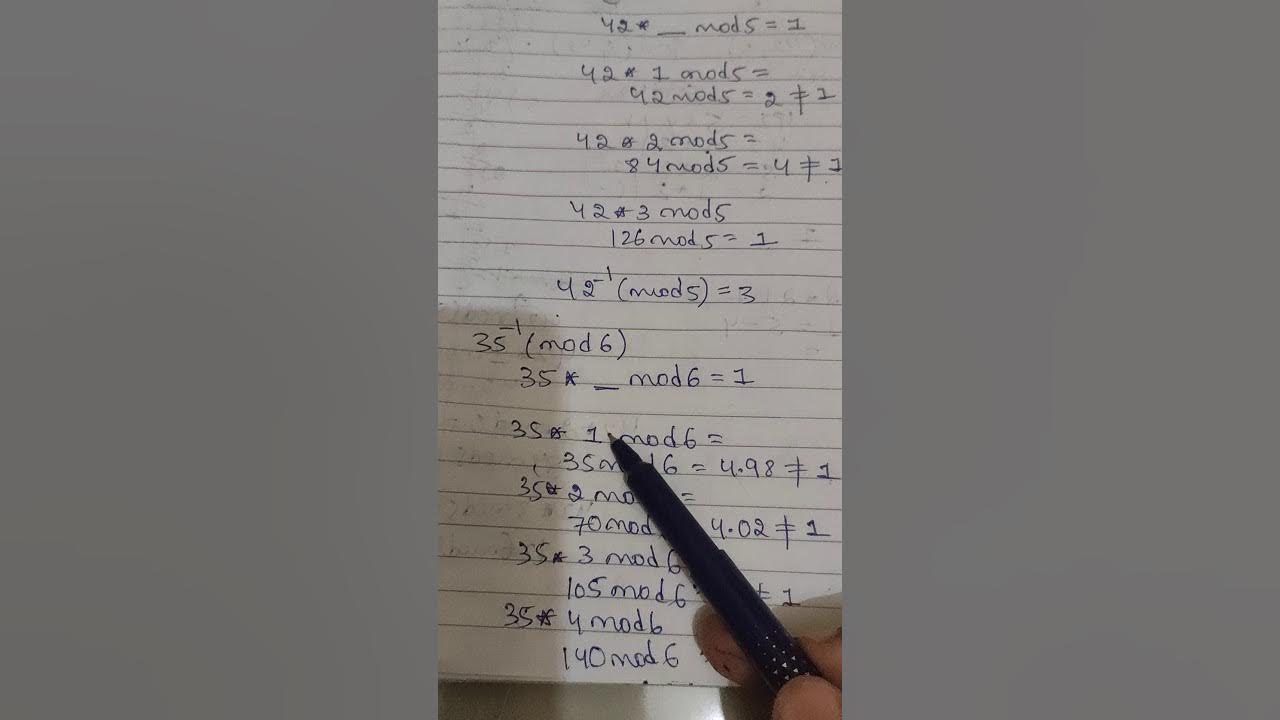 42* _ mod5 = 1
42 * 1 mod5 =
42mod5 = 2 ≠ 1
42 * 2 mod5 =
84mod5 = 4 ≠ 1
42 * 3 mod5
126mod5 = 1
42⁻¹ (mod5) = 3
35⁻¹ (mod 6)
35 * _ mod6 = 1
35 * 1 mod6 =
35mod6 = 4.98 ≠ 1
35 * 2 mo =
70mod 4.02 ≠ 1
35 * 3 mod6
105mod6 ≠ 1
35 * 4mod6
140mod6